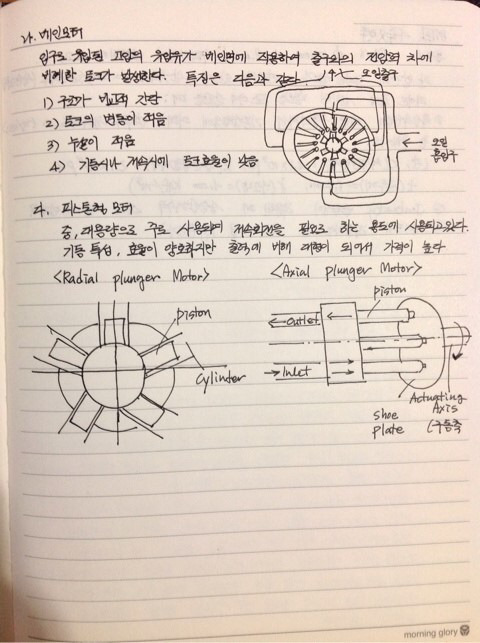 나. 베인모터
입구로 유입된 고압의 유압유가 베인면에 작용하여 출구와의 전압력 차에
비례한 토크가 발생한다. 특징은 다음과 같다.
오일출구
1) 구조가 비교적 간단
2) 토크의 변동이 적음
3) 누설이 적음
4) 기동시나 저속시에 토크효율이 낮음
오일
흡입구
다. 피스톤형 모터
중, 대용량으로 주로 사용되며 저속회전을 필요로 하는 용도에 사용되고 있다.
기동 특성, 효율이 양호하지만 출력에 비해 대형이 되어서 가격이 높다
<Radial plunger Motor> <Axial plunger Motor>
piston
cylinder
piston
Outlet
Inlet
shoe
plate
Actuating
Axis
(구동축
morning glory